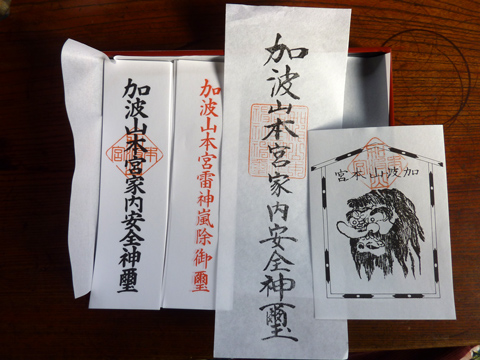 加波山本宮家内安全神璽
加波山本宮雷神嵐除御璽
加波山本宮家内安全神璽
加波山本宮